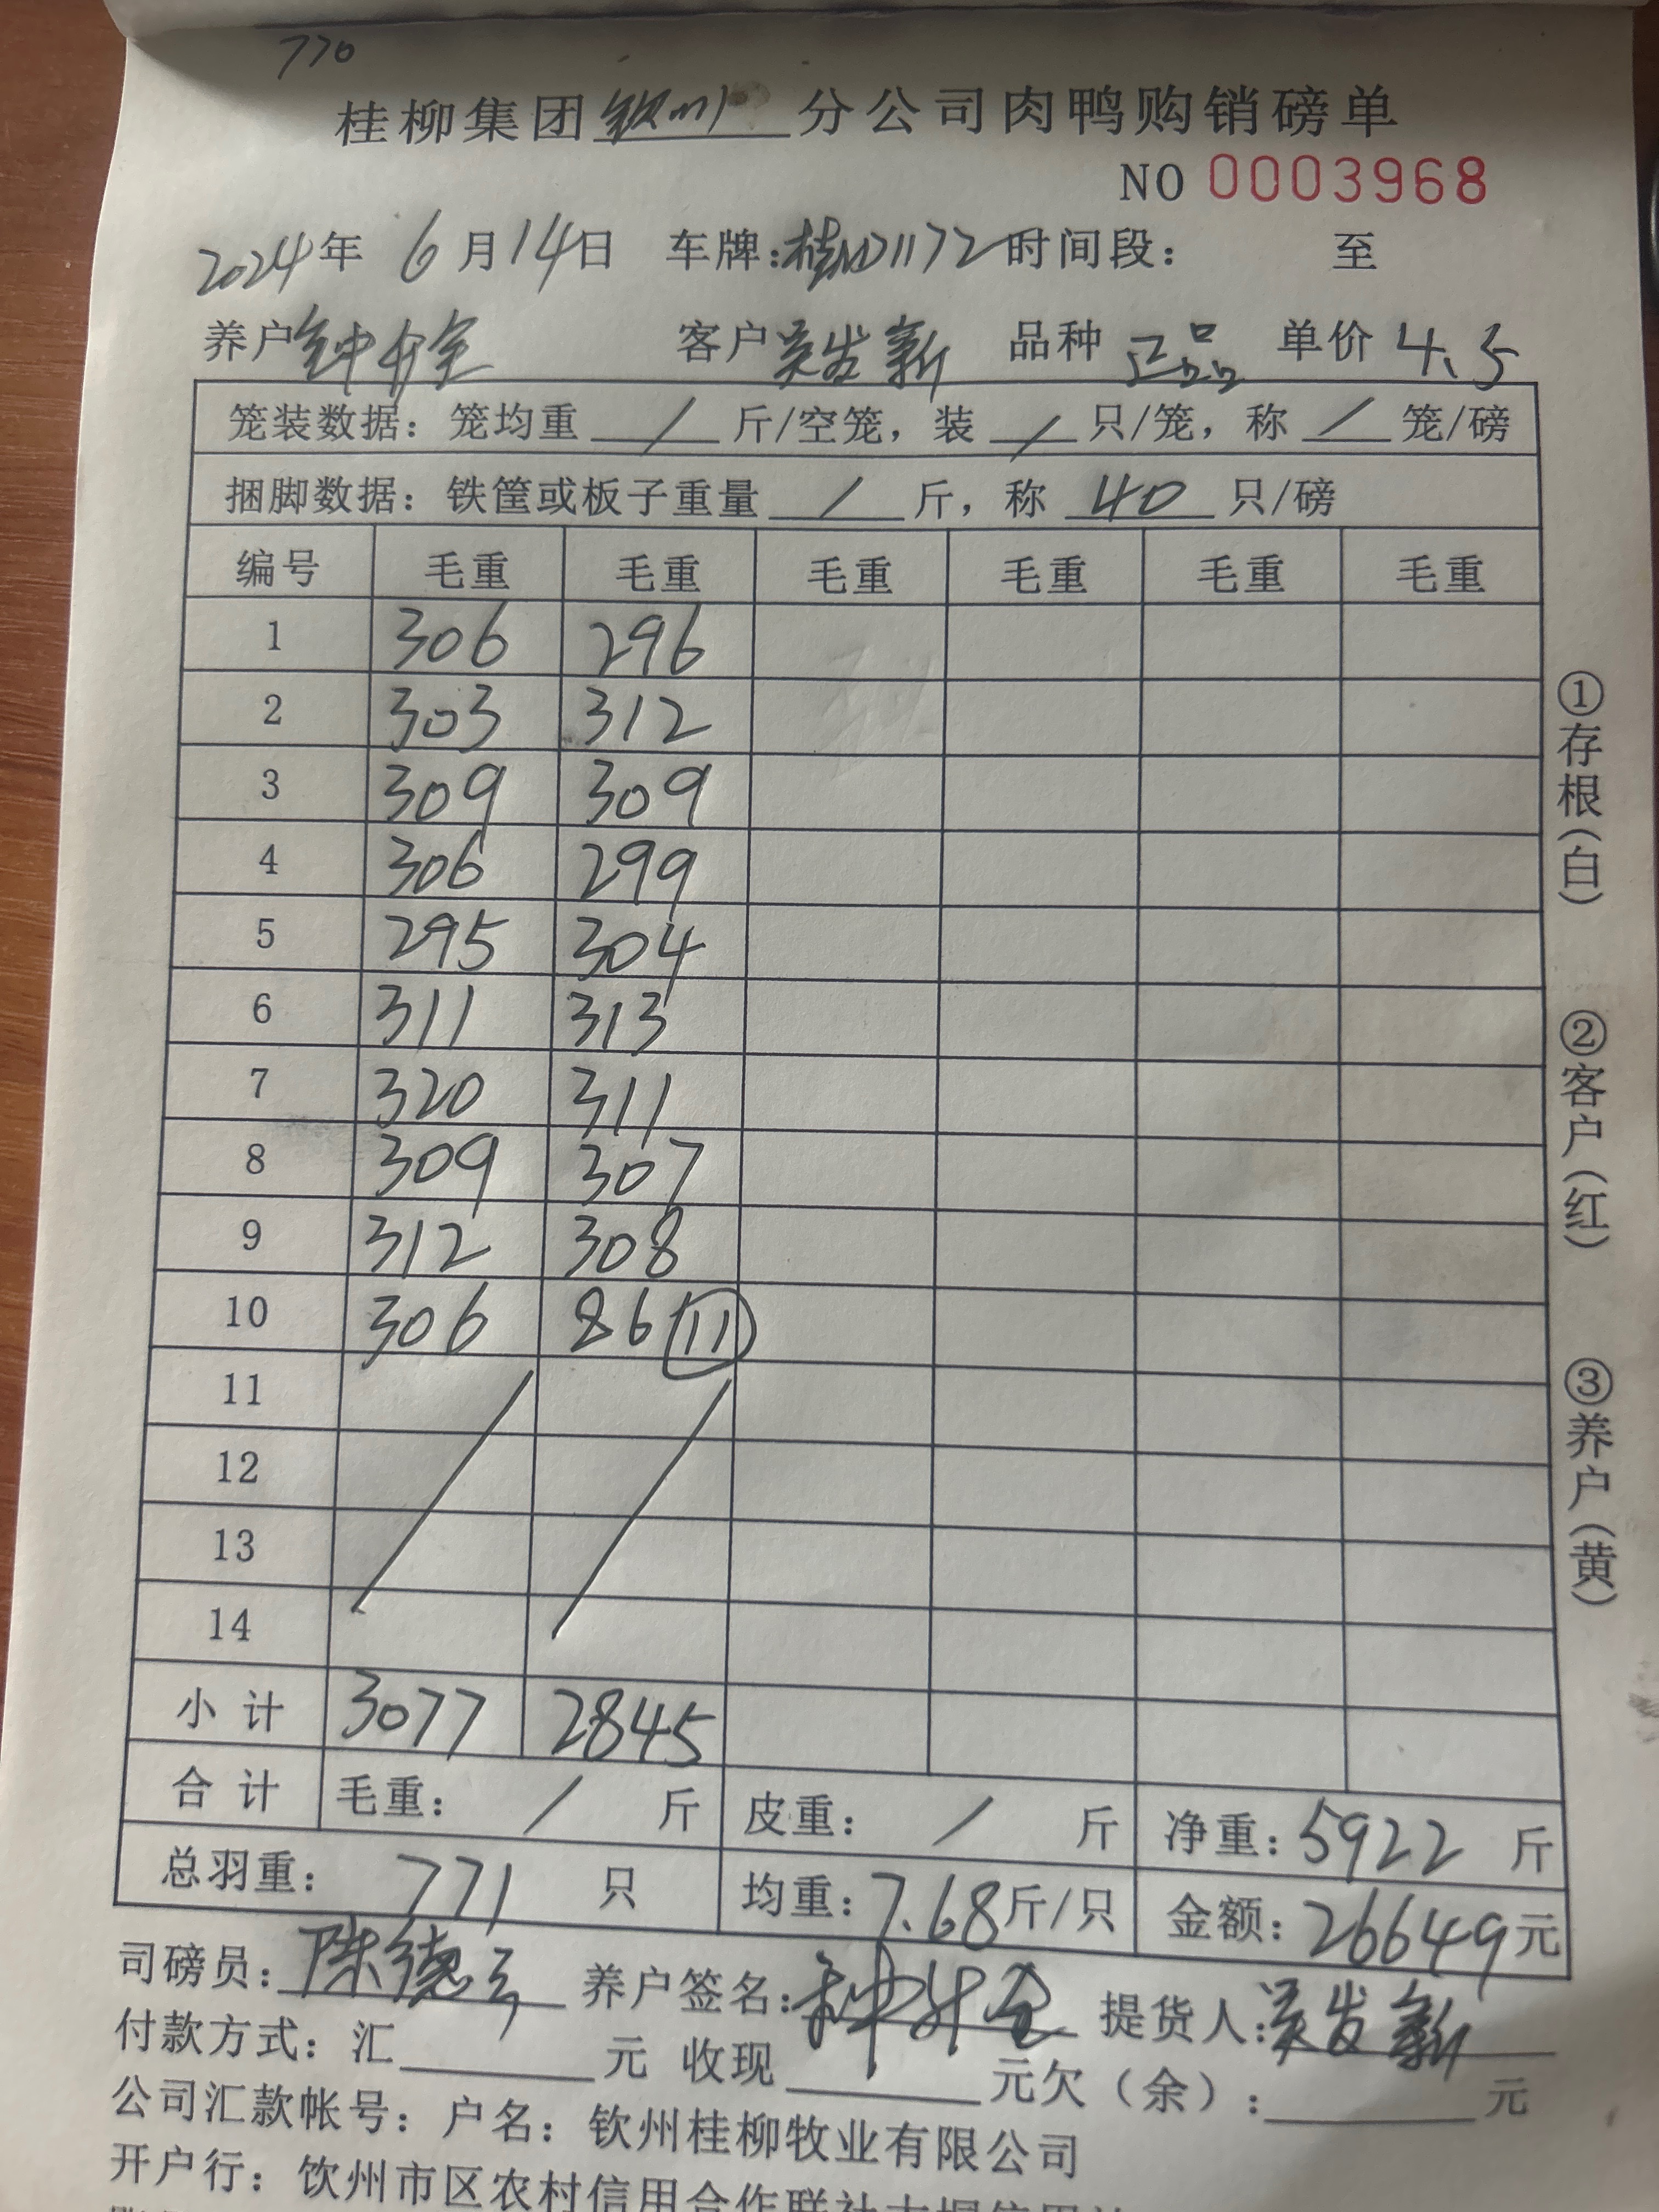 770
桂柳集团钦州分公司肉鸭购销磅单
NO 0003968
2024年 6月14日 车牌:桂MD1172 时间段: 至
养户 客户 吴发新 品种 正品 单价 4.5
笼装数据: 笼均重 / 斤/空笼, 装 / 只/笼, 称 / 笼/磅
捆脚数据: 铁筐或板子重量 / 斤, 称 40 只/磅
编号 毛重 毛重 毛重 毛重 毛重 毛重
1 306 296
2 303 312
3 309 309
4 306 299
5 295 304
6 311 313
7 320 311
8 309 307
9 312 308
10 306 86 11
11
12
13
14
小计 3077 2845
合计 毛重: / 斤 皮重: / 斤 净重: 5922 斤
总羽重: 771 只 均重: 7.68斤/只 金额: 26649元
司磅员: 陈德 养户签名: 提货人: 吴发新
付款方式: 汇 元 收现 元欠(余): 元
公司汇款帐号: 户名: 钦州桂柳牧业有限公司
开户行: 钦州市区农村信用合作联社
①存根(白)
②客户(红)
③养户(黄)